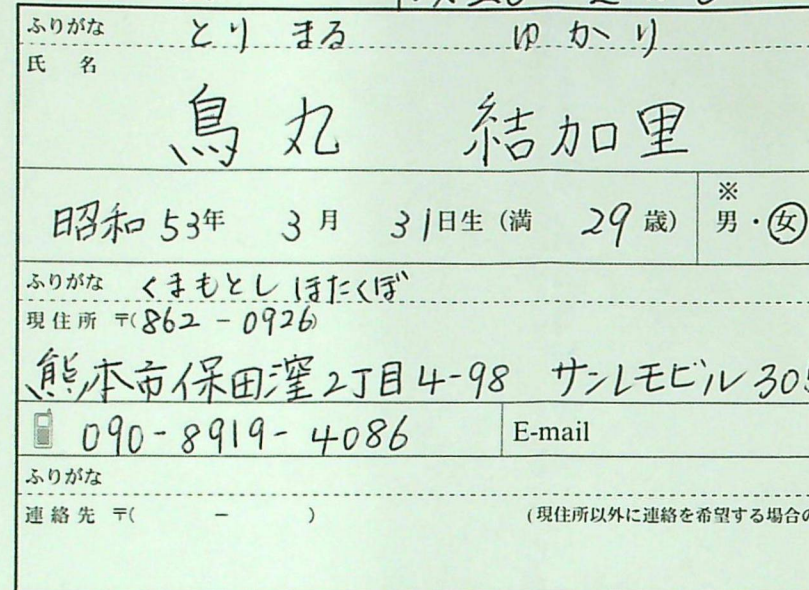 ふりがな とりまる ゆかり
氏 名
鳥丸 結加里
昭和53年 3月 31日生（満 29歳）
※
男・女
ふりがな くまもとしほたくぼ
現住所 〒(862-0926)
熊本市保田窪2丁目4-98 サンレモビル305
090-8919-4086 E-mail
ふりがな
連絡先 〒( - ) (現住所以外に連絡を希望する場合の